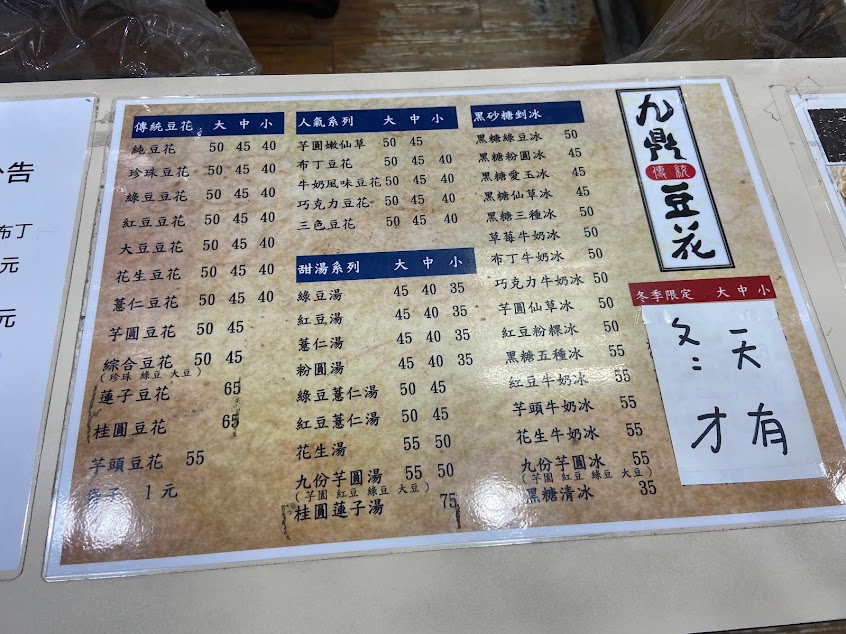 公告
布丁
元
元
傳統豆花 大 中 小
純豆花 50 45 40
珍珠豆花 50 45 40
綠豆豆花 50 45 40
紅豆豆花 50 45 40
大豆豆花 50 45 40
花生豆花 50 45 40
薏仁豆花 50 45 40
芋圓豆花 50 45
綜合豆花 50 45
(珍珠 綠豆 大豆)
蓮子豆花 65
桂圓豆花 65
芋頭豆花 55
袋子 1元
人氣系列 大 中 小
芋圓嫩仙草 50 45
布丁豆花 50 45 40
牛奶風味豆花 50 45 40
巧克力豆花 50 45 40
三色豆花 50 45 40
甜湯系列 大 中 小
綠豆湯 45 40 35
紅豆湯 45 40 35
薏仁湯 45 40 35
粉圓湯 45 40 35
綠豆薏仁湯 50 45
紅豆薏仁湯 50 45
花生湯 55 50
九份芋圓湯 55 50
(芋圓 紅豆 綠豆 大豆)
桂圓蓮子湯 75
黑砂糖剉冰
黑糖綠豆冰 50
黑糖粉圓冰 45
黑糖愛玉冰 50
黑糖仙草冰 50
黑糖三種冰 50
草莓牛奶冰 50
布丁牛奶冰 50
巧克力牛奶冰 50
芋圓仙草冰 50
紅豆粉粿冰 50
黑糖五種冰 55
紅豆牛奶冰 55
芋頭牛奶冰 55
花生牛奶冰 55
九份芋圓冰 55
(芋圓 紅豆 綠豆 大豆)
黑糖清冰 35
九鼎
傳統
豆花
冬季限定 大 中 小
冬天
才有